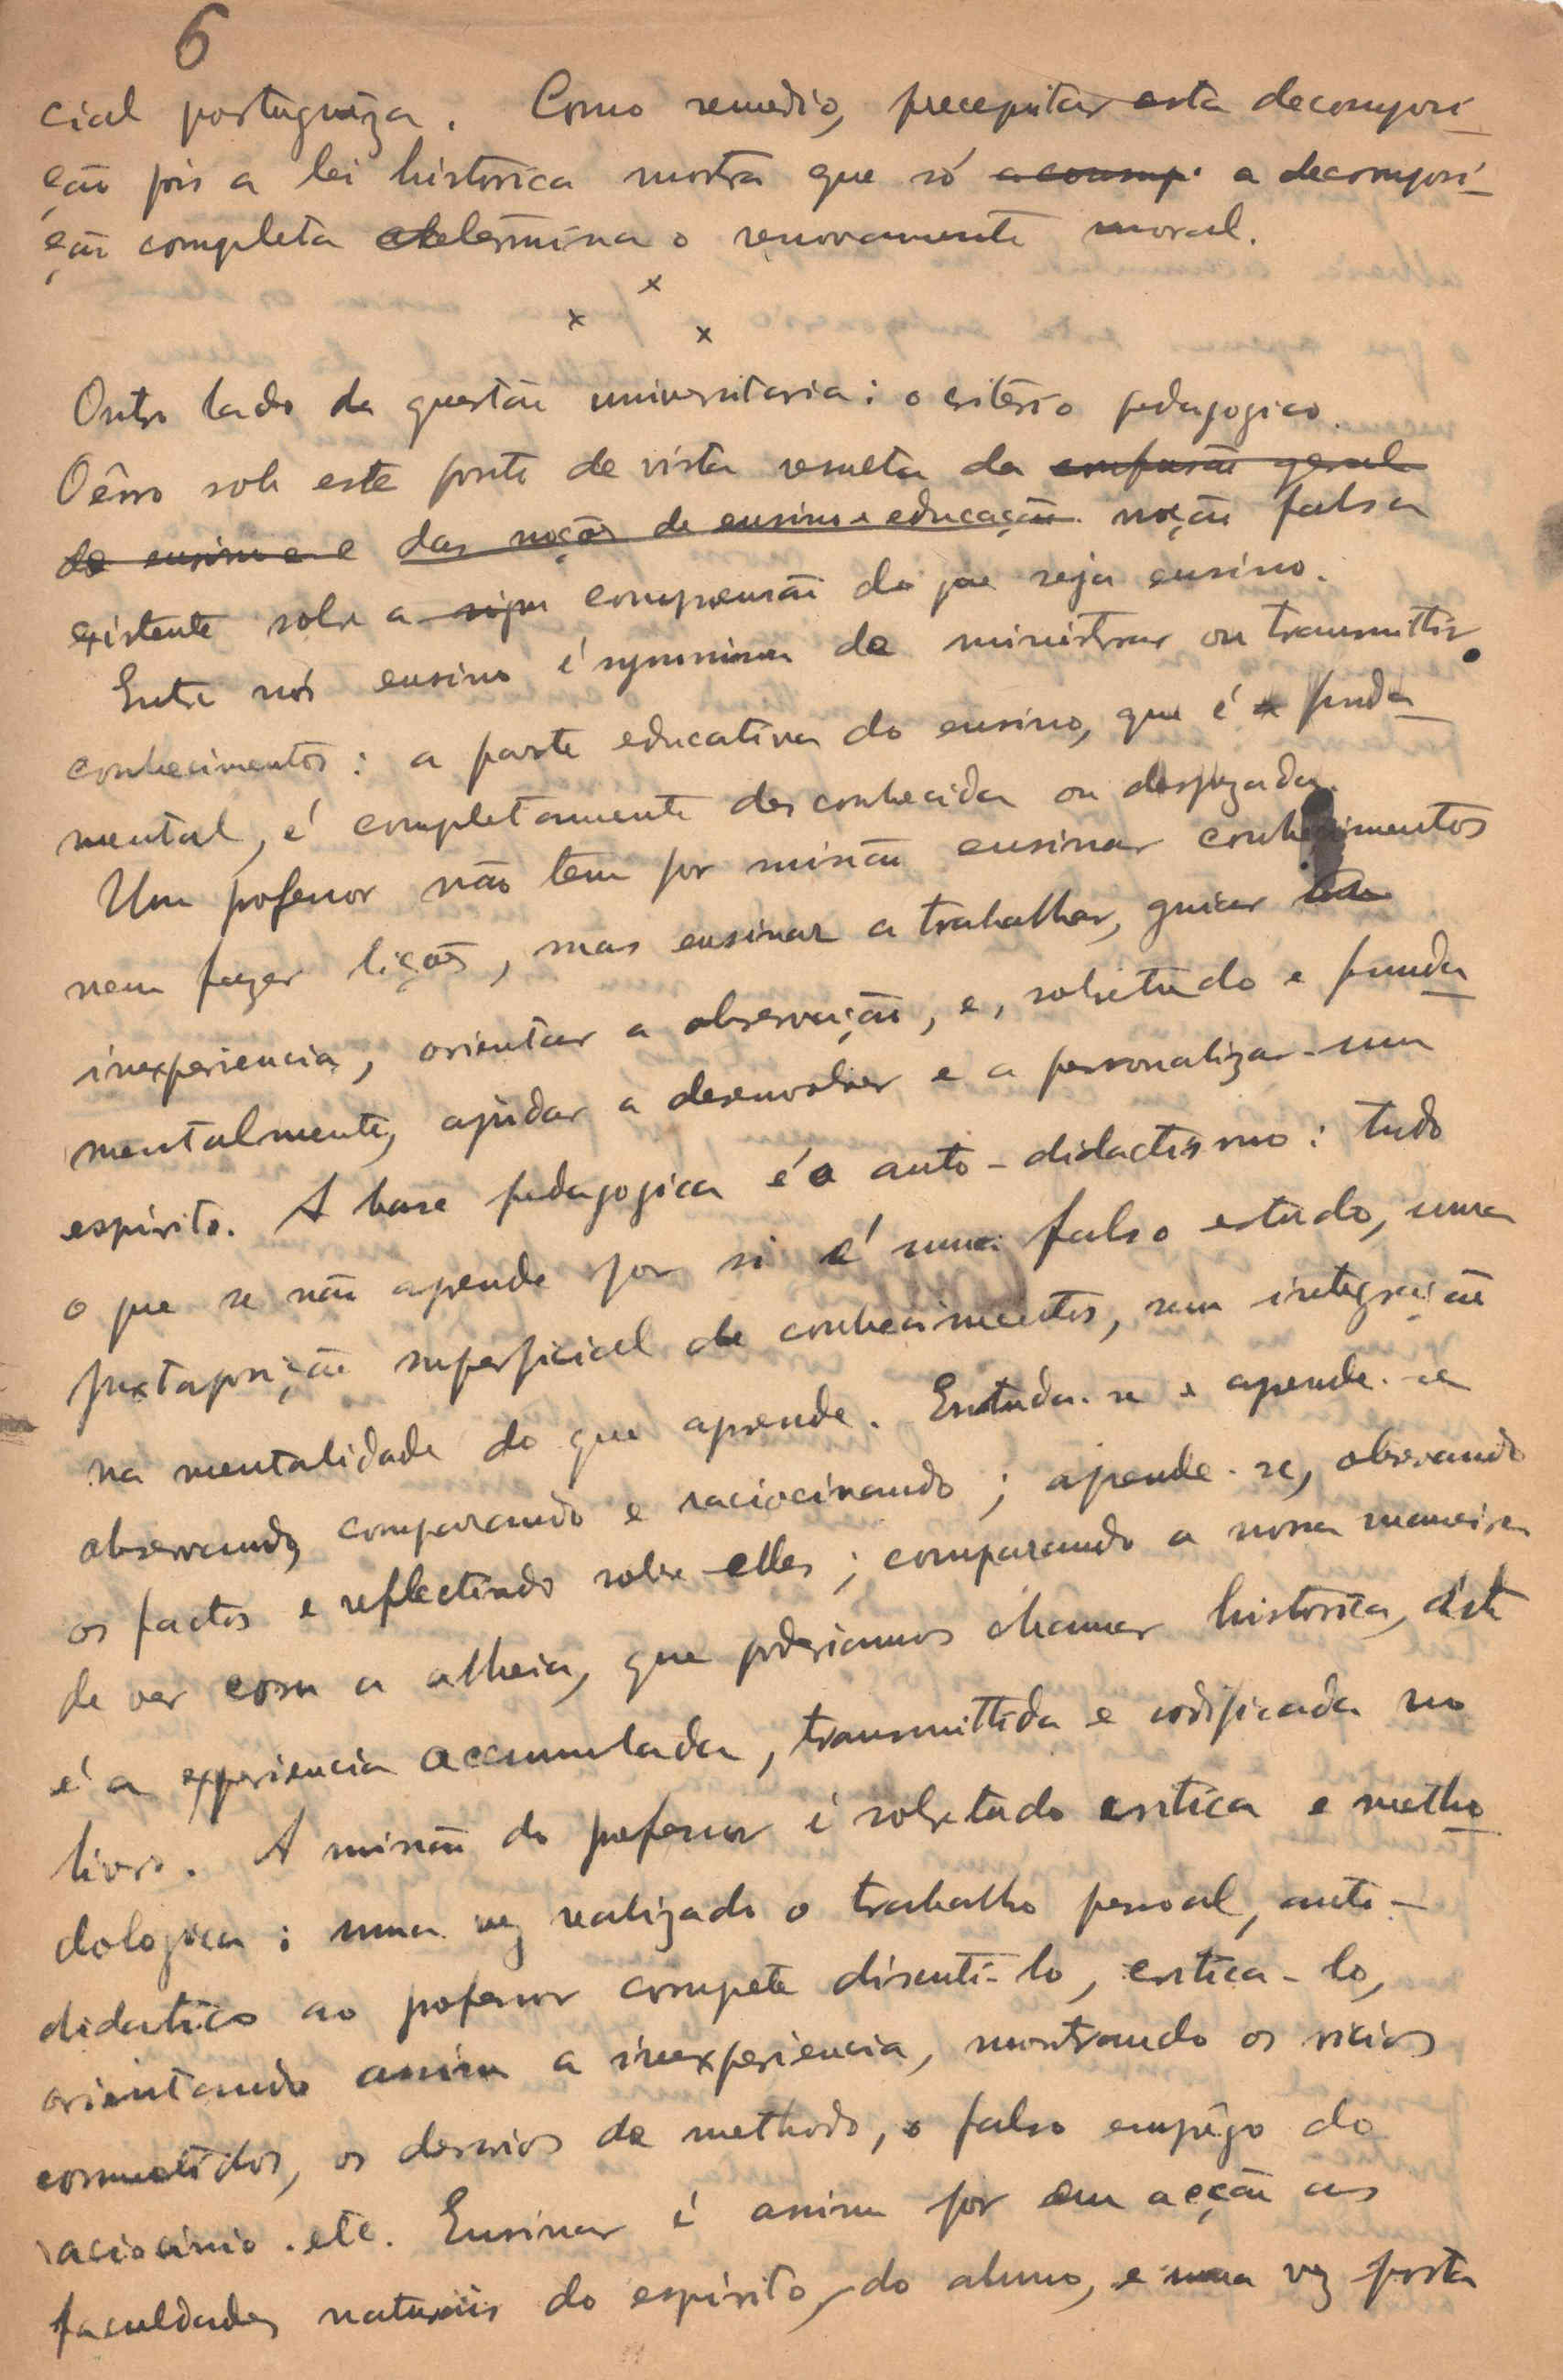 6
cial portugueza. Como remedio, precepitar esta decomposi-
ção pois a lei historica mostra que só a comp. a decomposi-
ção completa determina o renovamento moral.
x
x x
Outro lado da questão universitaria: o criterio pedagogico.
O êrro sob este ponto de vista resulta da confusão geral
de ensino e e das noções de ensino e educação. noção falsa
existente sobre a comprensão do que seja ensino.
Entre nós ensino é synonimo de ministrar ou transmittir
conhecimentos: a parte educativa do ensino, que é a funda-
mental, é completamente desconhecida ou desprezada.
Um professor não tem por missão ensinar conhecimentos
nem fazer lições, mas ensinar a trabalhar, guiar
inexperiencia, orientar a observação, e, sobretudo e funda-
mentalmente, ajudar a desenvolver e a personalizar um
espirito. A base pedagogica é o auto-didactismo: tudo
o que se não aprende por si é um falso estudo, uma
juxtaposição superficial de conhecimentos, sem integração
na mentalidade do que aprende. Estuda-se e aprende-se
observando, comparando e raciocinando; aprende-se, observando
os factos e reflectindo sobre elles; comparando a nossa maneira
de ver com a alheia, que poderiamos chamar historica, isto
é a experiencia accumulada, transmittida e codificada no
livro. A missão do professor é sobretudo critica e metho-
dologica: uma vez realizado o trabalho pessoal, auto-
didatico ao professor compete discuti-lo, critica-lo,
orientando assim a inexperiencia, mostrando os vicios
commetidos, os desvios de methodo, o falso emprêgo do
raciocinio. etc. Ensinar é assim pôr em acção as
faculdades naturais do espirito do aluno, e uma vez posta